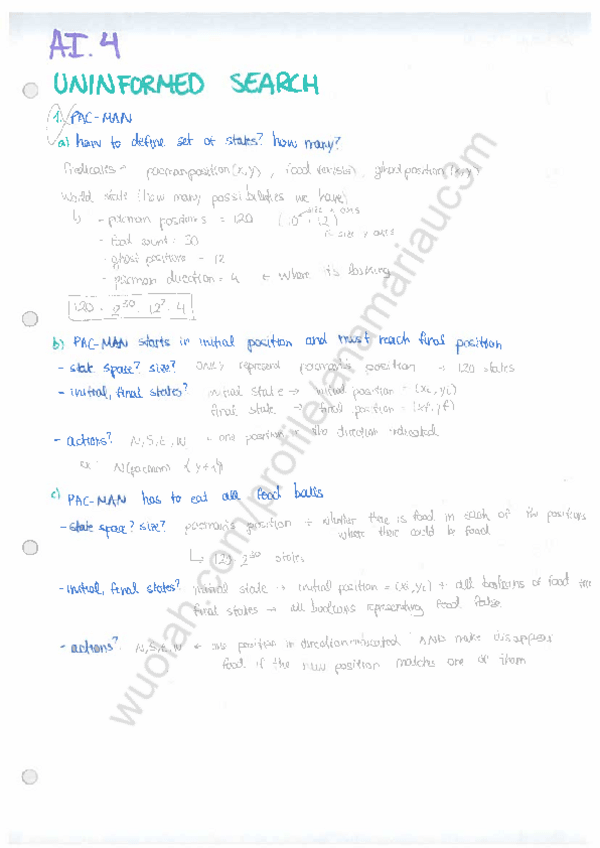 AI.4
UNINFORMED SEARCH
1. PAC-MAN
a) how to define set of states? how many?
Predicates - pacmanposition(x,y), food, ghostposition(x,y)
World state (how many possibilities we have)
↳ - pacman positions = 120 (10 · 12)
size x axes
size y axes
- food count: 30
- ghost positions - 12
- pacman direction = 4 ← where is looking
120 · 2^30 · 12^2 · 4
b) PAC-MAN starts in initial position and must reach final position
- state space? size? only represent pacman's position 120 states
- initial, final states? initial state → initial position = (xi, yi)
final state → final position = (xf, yf)
- actions? N, S, E, W - one position in the direction indicated
N(pacman) {y+1}
c) PAC-MAN has to eat all food balls
- state space? size? pacman's position + whether there is food in each of the positions
where there could be food
↳ 120 · 2^30 states
- initial, final states? initial state → initial position = (xi, yi) + all booleans of food true
final states → all booleans representing food false
- actions? N, S, E, W ← one position in direction indicated AND make disappear
food if the new position matches one of them
wuolah.com/profile/anamariauc3m